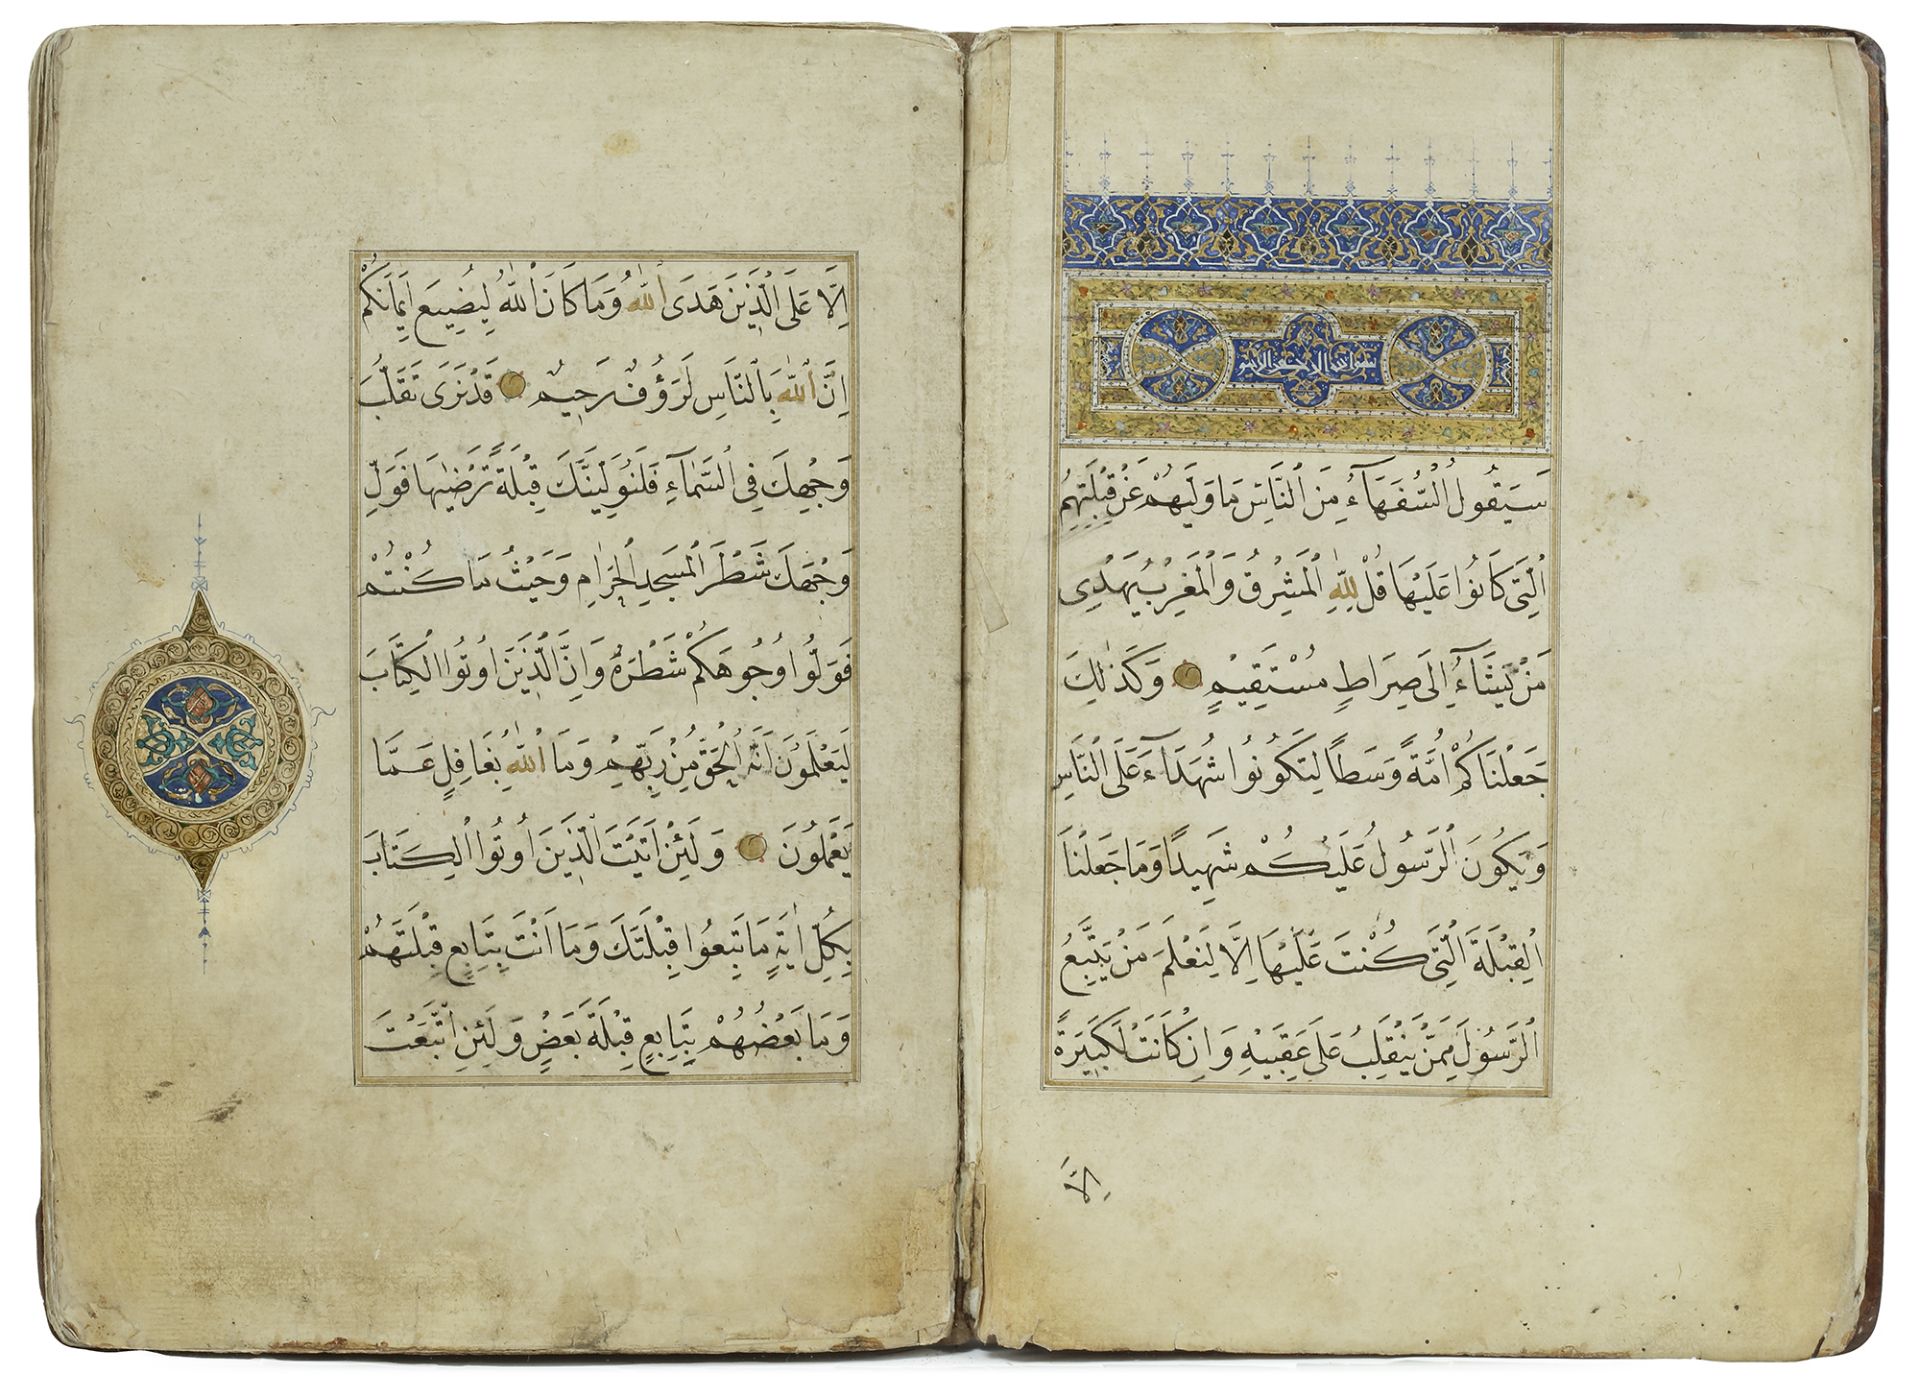 بسم الله الرحمن الرحيم
سَيَقُولُ ٱلسُّفَهَآءُ مِنَ ٱلنَّاسِ مَا وَلّٰيهُمْ عَنْ قِبْلَتِهِمُ
ٱلَّتِى كَانُوا عَلَيْهَا قُلْ لِلّٰهِ ٱلْمَشْرِقُ وَٱلْمَغْرِبُ يَهْدِى
مَنْ يَشَآءُ اِلَى صِرَاطٍ مُسْتَقِيمٍ وَكَذٰلِكَ
جَعَلْنَاكُمْ اُمَّةً وَسَطًا لِتَكُونُوا شُهَدَآءَ عَلَى ٱلنَّاسِ
وَيَكُونَ ٱلرَّسُولُ عَلَيْكُمْ شَهِيدًا وَمَا جَعَلْنَا
ٱلْقِبْلَةَ ٱلَّتِى كُنْتَ عَلَيْهَا اِلَّا لِنَعْلَمَ مَنْ يَتَّبِعُ
ٱلرَّسُولَ مِمَّنْ يَنْقَلِبُ عَلَى عَقِبَيْهِ وَاِنْ كَانَتْ لَكَبِيرَةً
اِلَّا
اِلَّا عَلَى ٱلَّذِينَ هَدَى ٱللّٰهُ وَمَا كَانَ ٱللّٰهُ لِيُضِيعَ اِيمَانَكُمْ
اِنَّ ٱللّٰهَ بِٱلنَّاسِ لَرَؤُفٌ رَحِيمٌ قَدْ نَرَى تَقَلُّبَ
وَجْهِكَ فِى ٱلسَّمَآءِ فَلَنُوَلِّيَنَّكَ قِبْلَةً تَرْضٰيهَا فَوَلِّ
وَجْهَكَ شَطْرَ ٱلْمَسْجِدِ ٱلْحَرَامِ وَحَيْثُ مَا كُنْتُمْ
فَوَلُّوا وُجُوهَكُمْ شَطْرَهُ وَاِنَّ ٱلَّذِينَ اُوتُوا ٱلْكِتَابَ
لَيَعْلَمُونَ اَنَّهُ ٱلْحَقُّ مِنْ رَبِّهِمْ وَمَا ٱللّٰهُ بِغَافِلٍ عَمَّا
يَعْمَلُونَ وَلَئِنْ اَتَيْتَ ٱلَّذِينَ اُوتُوا ٱلْكِتَابَ
بِكُلِّ اٰيَةٍ مَا تَبِعُوا قِبْلَتَكَ وَمَا اَنْتَ بِتَابِعٍ قِبْلَتَهُمْ
وَمَا بَعْضُهُمْ بِتَابِعٍ قِبْلَةَ بَعْضٍ وَلَئِنِ ٱتَّبَعْتَ